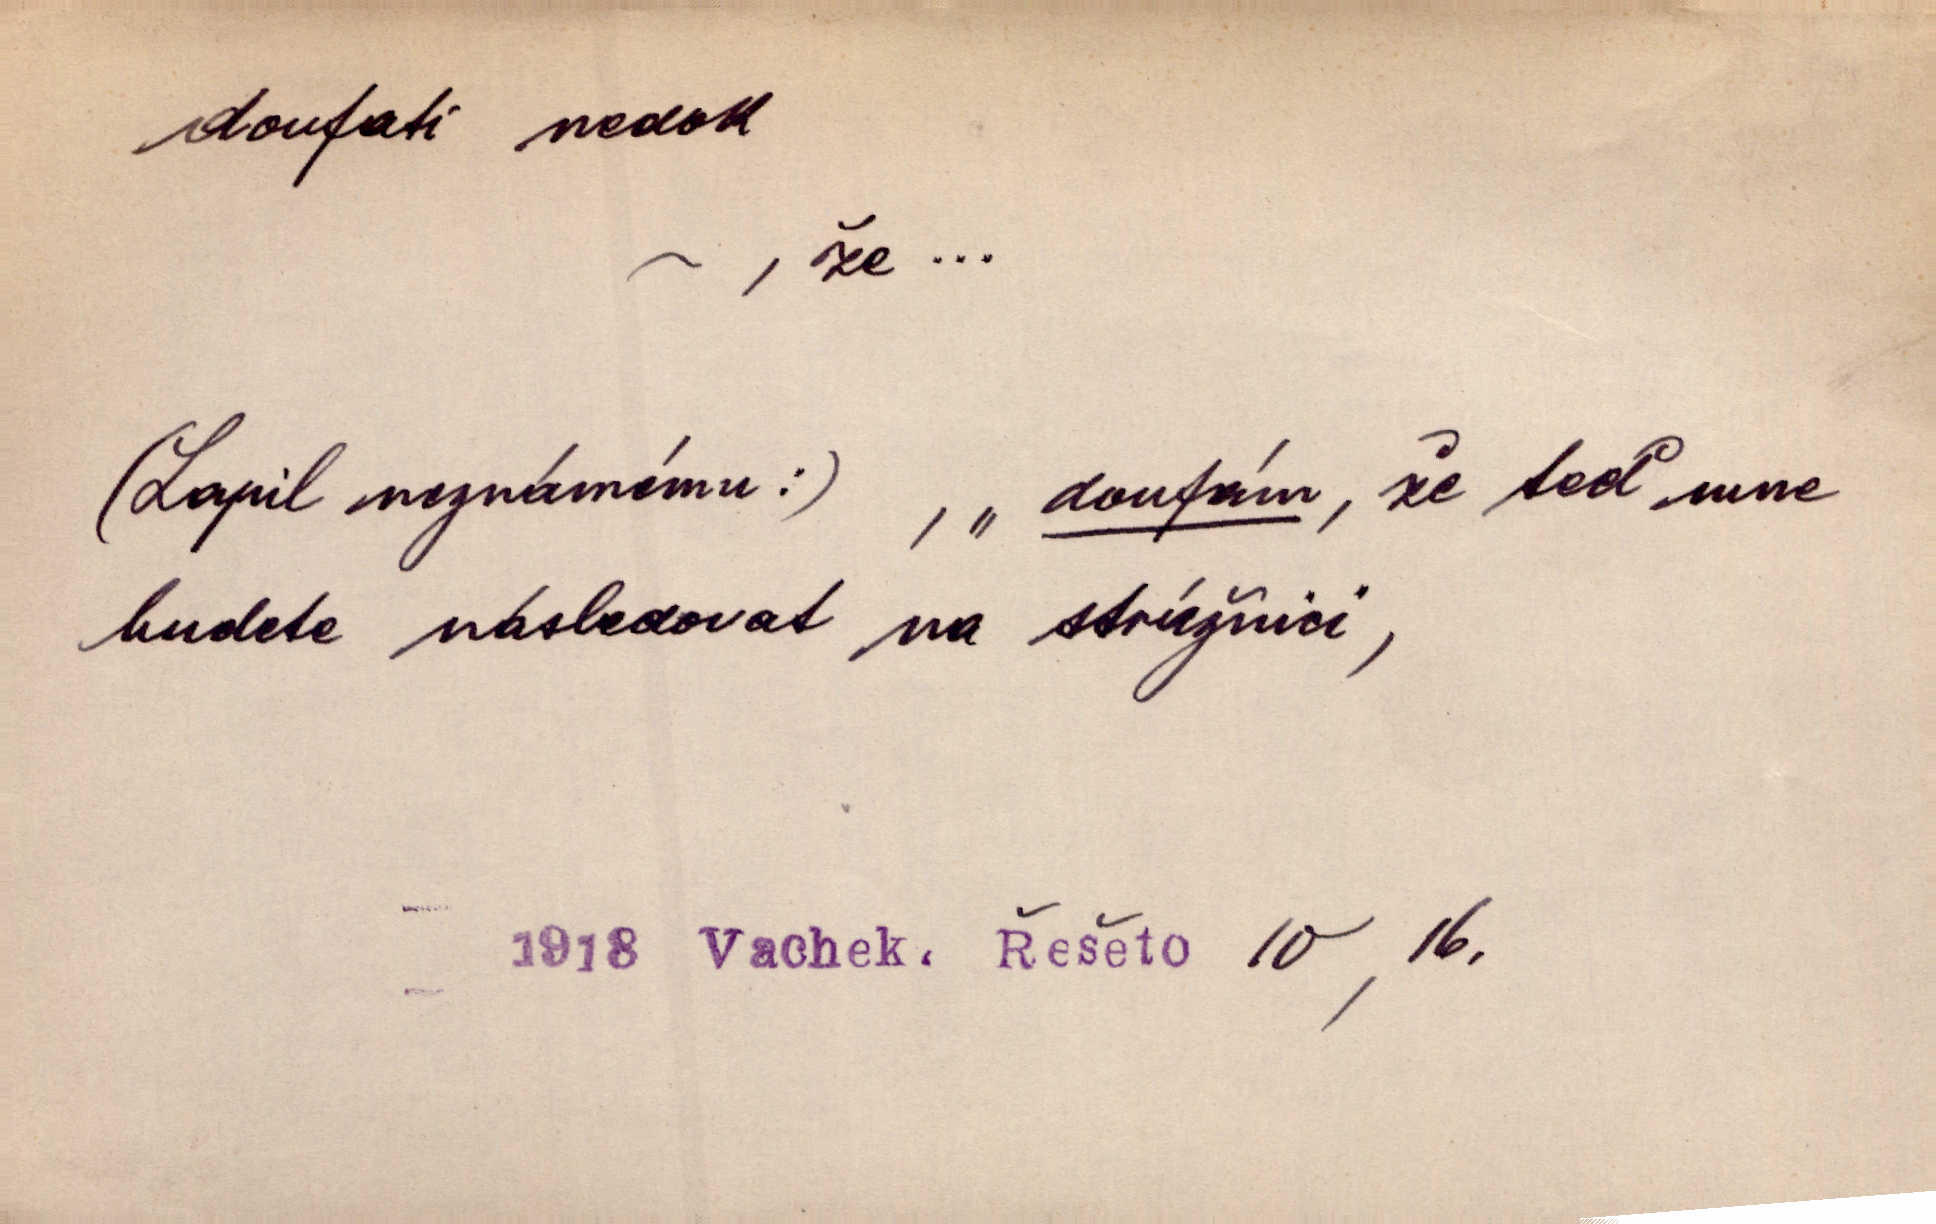 doufati nedok
~ , že ...
(Lapil neznámému:) , „ doufám, že teď mne
budete následovat na strážnici,
1918 Vachek. Řešeto 10, 16.